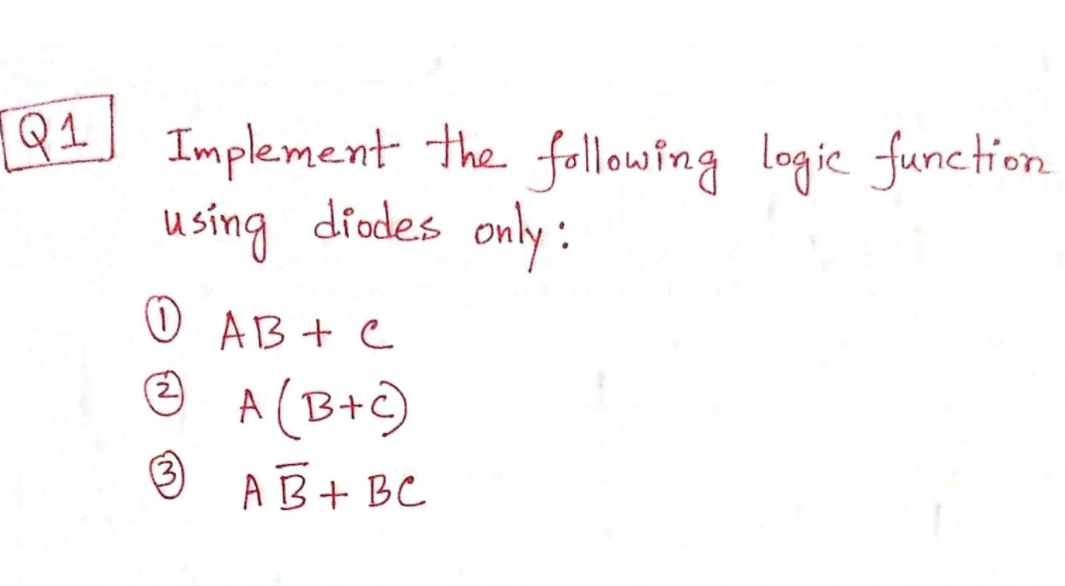 Q1 Implement the following logic function
using diodes only:
① AB + C
② A(B+C)
③ AB̅ + BC